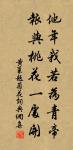 他年我若為青帝
報與桃花一處開
黃巢題菊花詞與網集